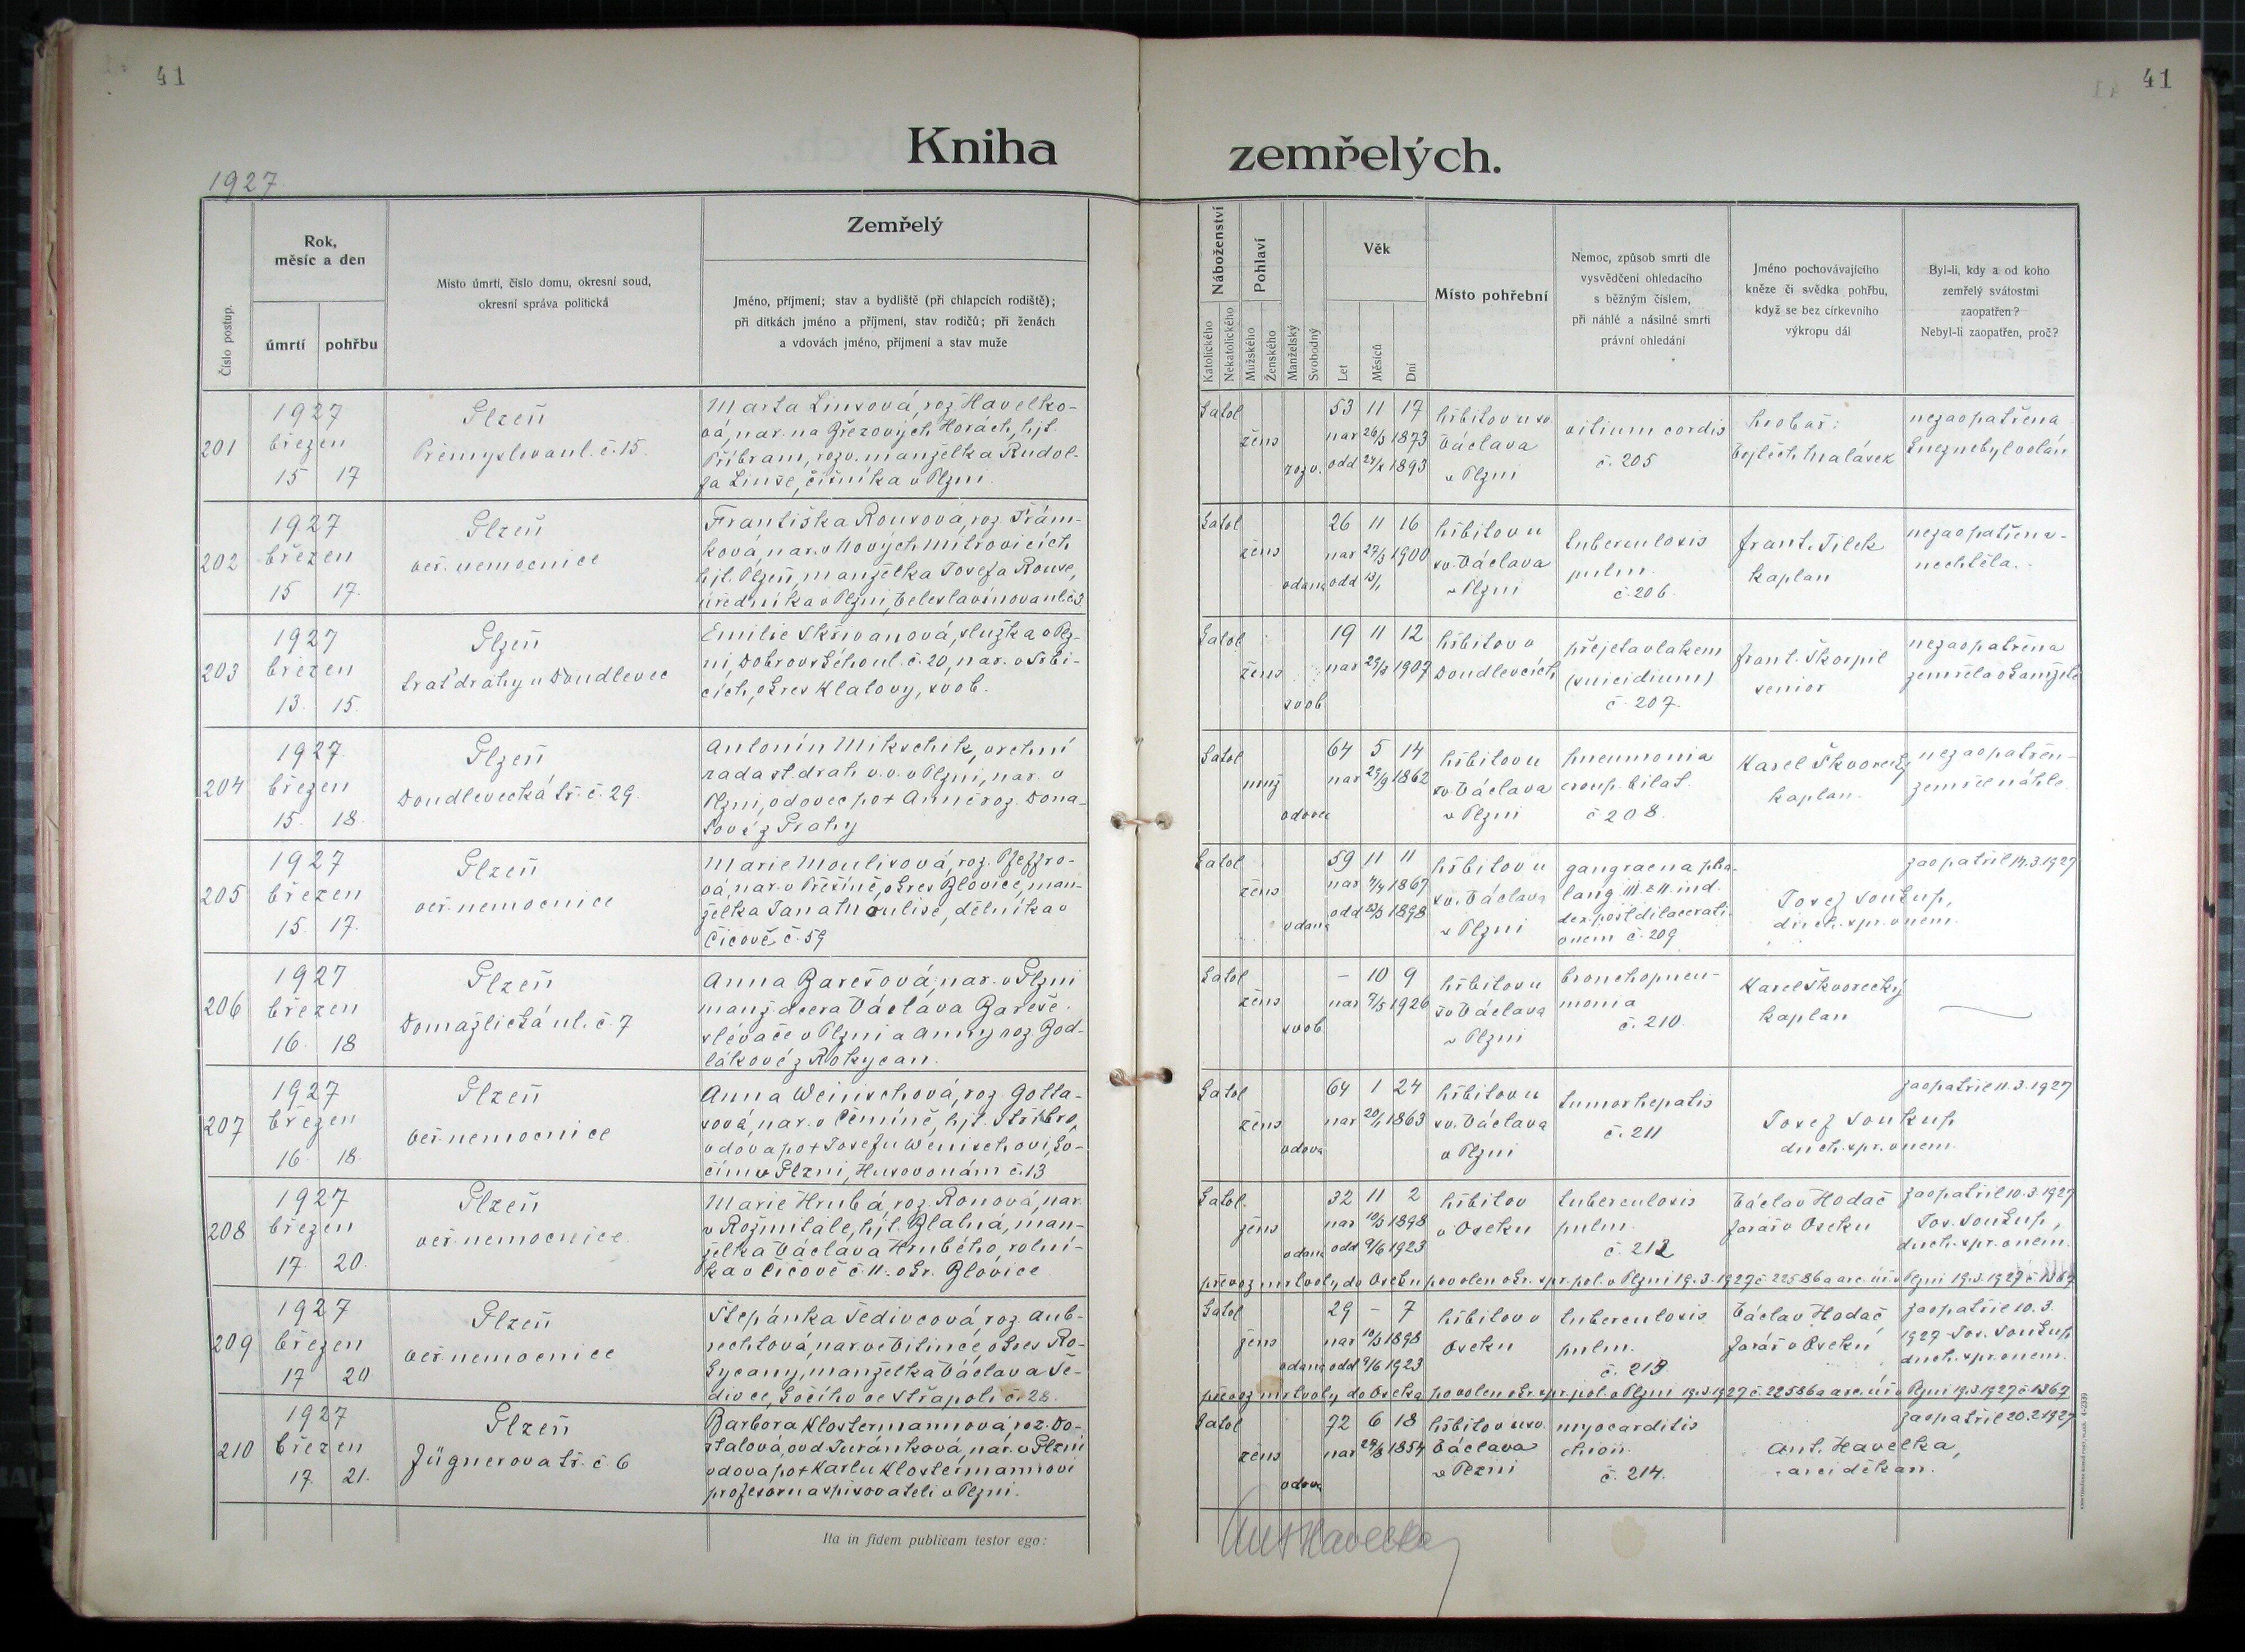 41
41
Kniha
zemřelých.
1927
Číslo postup.
Rok,
měsíc a den
úmrtí
pohřbu
Místo úmrtí, číslo domu, okresní soud,
okresní správa politická
Zemřelý
Jméno, příjmení; stav a bydliště (při chlapcích rodiště);
při dítkách jméno a příjmení, stav rodičů; při ženách
a vdovách jméno, příjmení a stav muže
Náboženství
Katolického
Nekatolického
Pohlaví
Mužského
Ženského
Manželský
Svobodný
Věk
Let
Měsíců
Dní
Místo pohřební
Nemoc, způsob smrti dle
vysvědčení ohledacího
s běžným číslem,
při náhlé a násilné smrti
právní ohledání
Jméno pochovávajícího
kněze či svědka pohřbu,
když se bez církevního
výkropu dál
Byl-li, kdy a od koho
zemřelý svátostmi
zaopatřen?
Nebyl-li zaopatřen, proč?
201
1927
březen
15 17
Plzeň
Přemyslova ul. č. 15.
Marta Linsová, roz. Havelko-
vá, nar. na Březových Horách, hjt.
Příbram, rozv. manželka Rudol-
fa Linse, číšníka v Plzni.
katol
žens
rozv.
53 11 17
nar 26/3 1873
odd 1893
hřbitov u sv.
Václava
v Plzni
vitium cordis
č. 205
hrobař:
Vojtěch Malásek
nezaopatřena
kněz nebyl volán
202
1927
březen
15 17.
Plzeň
veř. nemocnice
Františka Rousová, roz. Trám-
ková, nar. v Nových Mitrovicích
hjt. Plzeň, manželka Josefa Rouse,
úředníka v Plzni, Veleslavínova ul. č. 3
katol
žens
vdaná
26 11 16
nar 27/3 1900
odd
hřbitov u
sv. Václava
v Plzni
tuberculosis
pulm.
č. 206.
Frant. Jílek
kaplan
nezaopatřena-
nechtěla.
203
1927
březen
13. 15.
Plzeň
trať dráhy u Doudlevec
Emilie Skřivanová, služka v Plz-
ni, Dobrovského ul. č. 20, nar. v Srbi-
cích, okres Klatovy, svob.
katol
žens
svob
19 11 12
nar 1907
hřbitov v
Doudlevcích
přejeta vlakem
(suicidium)
č. 207.
Frant. Škorpil
senior
nezaopatřena
zemřela okamžitě
204
1927.
březen
15. 18.
Plzeň
Doudlevecká tř. č. 29.
Antonín Mikschik, vrchní
rada st. drah v. v. v Plzni, nar. v
Plzni, vdovec po † Anně roz. Dona-
tově z Prahy
katol
muž
vdovec
64 5 14
nar 29/9 1862
hřbitov u
sv. Václava
v Plzni
pneumonia
croup. bilat.
č 208.
Karel Škvorecký
kaplan.
nezaopatřen-
zemřel náhle.
205
1927
březen
15. 17.
Plzeň
veř. nemocnice
Marie Moulisová, roz. Pfeffro-
vá, nar. v Přešíně, okres Blovice, man-
želka Jana Moulise, dělníka v
Čicově č. 59
katol
žens
vdaná
59 11 11
nar 4/4 1867
odd 1898
hřbitov u
sv. Václava
v Plzni
gangraena pha-
lang. III. et II. ind.
dex. post dilacerati-
onem č. 209
Josef Soukup,
duch. spr. v nem.
zaopatřil 14.3.1927
206
1927
březen
16. 18
Plzeň
Domažlická ul. č. 7
Anna Barešová, nar. v Plzni
manž. dcera Václava Bareše.
slévače v Plzni a Anny roz. Bod-
lákové z Rokycan.
katol
žens
svob
- 10 9
nar 7/5 1926
hřbitov u
sv Václava
v Plzni
bronchopneu-
monia
č. 210.
Karel Škvorecký
kaplan
207
1927
březen
16. 18.
Plzeň
veř. nemocnice
Anna Wenischová, roz. Gotta-
sová, nar. v Čemíně, hjt. Stříbro,
vdova po † Josefu Wenischovi, ko-
čím v Plzni, Husovo nám č. 13
katol
žens
vdova
64 1 24
nar 20/1 1863
hřbitov u
sv. Václava
v Plzni
tumor hepatis
č. 211
Josef Soukup
duch. spr. v nem.
zaopatřil 11.3.1927
208
1927
březen
17. 20.
Plzeň
veř. nemocnice
Marie Hrubá, roz. Ronová, nar.
v Rožmitále, hjt. Blatná, man-
želka Václava Hrubého, rolní-
ka v Čičově č. 11. okr. Blovice
katol.
žens
vdaná
32 11 2
nar 1898
odd 9/6 1923
hřbitov
v Oseku
tuberculosis
pulm.
č. 212
Václav Hodač
farář v Oseku
zaopatřil 10.3.1927
Jos. Soukup,
duch. spr. v nem.
převoz mrtvoly do Oseku povolen okr. spr. pol. v Plzni 19.3.1927 č. 22586 a arc. úř. v Plzni 19.3.1927 č. 1367
209
1927
březen
17 20
Plzeň
veř. nemocnice
Štěpánka Šedivcová, roz. Aub-
rechtová, nar. ve Vitince, okres Ro-
kycany, manželka Václava Še-
divce, kočího ve Střapoli č. 28.
katol
žens
vdaná
29 - 7
nar 10/3 1898
odd 9/6 1923
hřbitov v
Oseku
tuberculosis
pulm.
č. 213
Václav Hodač
farář v Oseku
zaopatřil 10.3.
1927 Jos. Soukup
duch. spr. v nem.
převoz mrtvoly do Oseka povolen okr. spr. pol. v Plzni 19.3.1927 č. 22586 a arc. úř. v Plzni 19.3.1927 č. 1367
210
1927
březen
17. 21.
Plzeň
Jügnerova tř. č. 6
Barbora Klostermannová, roz. Do-
stalová, ovd. Turánková, nar. v Plzni
vdova po † Karlu Klostermannovi
profesoru a spisovateli v Plzni.
katol
žens
vdova
72 6 18
nar 29/8 1854
hřbitov u sv.
Václava
v Plzni
myocarditis
chron.
č. 214.
Ant. Havelka,
arciděkan.
zaopatřil 20.2.1927
Ita in fidem publicam testor ego:
Ant Havelka